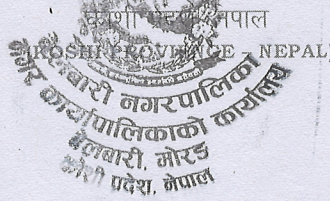 कोशी प्रदेश, नेपाल
(KOSHI PROVINCE - NEPAL)
बेलबारी नगरपालिका
नगर कार्यपालिकाको कार्यालय
बेलबारी, मोरङ
कोशी प्रदेश, नेपाल